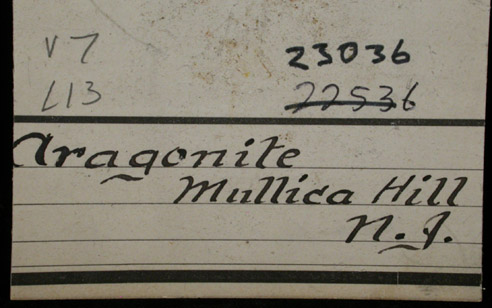 V7 23036
L13 22536
Aragonite
Mullica Hill
N.J.